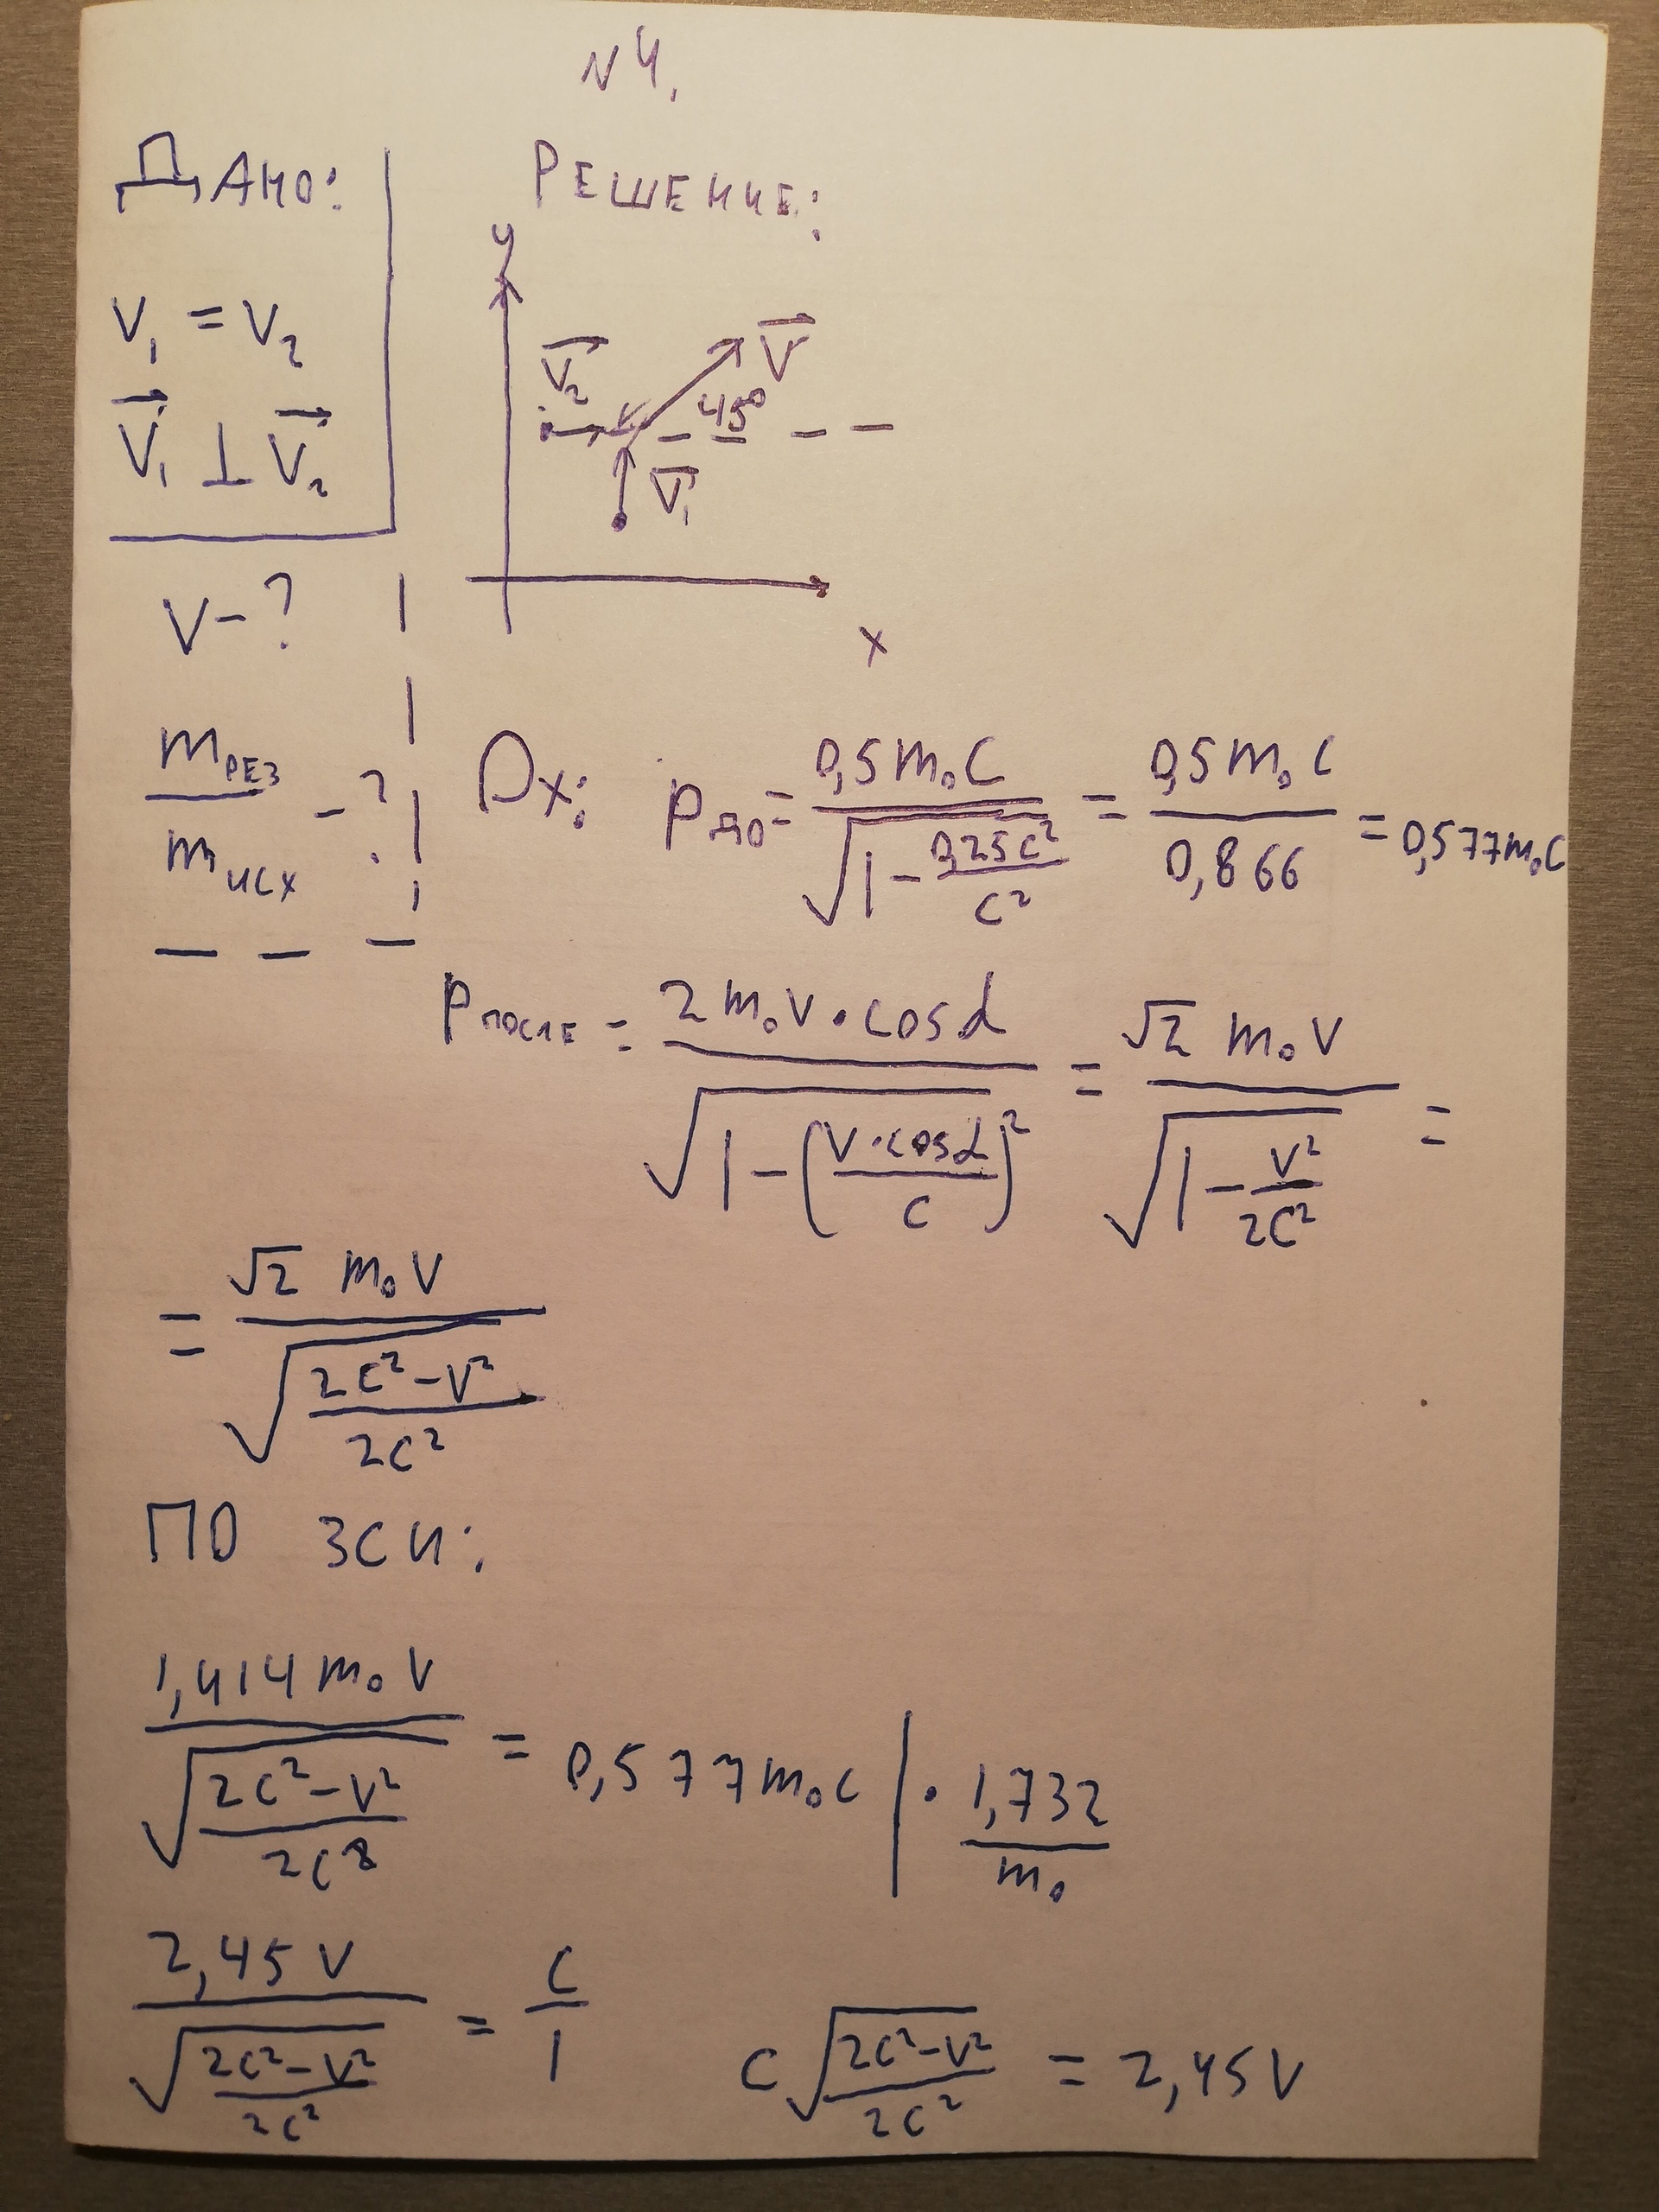 N4.
Дано:
Решение:
V₁ = V₂
V₁ ⊥ V₂
V - ?
mрез / mисх - ?
y
V₂
V
45°
V₁
x
Ox: Pдо = 0,5m₀c / √(1 - 0,25c²/c²) = 0,5m₀c / 0,866 = 0,577m₀c
Pпосле = 2m₀V·cosα / √(1 - (V·cosα/c)²) = √2 m₀V / √(1 - V²/2c²) =
= √2 m₀V / √((2c² - V²)/2c²)
По ЗСИ:
1,414m₀V / √((2c² - V²)/2c²) = 0,577m₀c | · 1,732/m₀
2,45V / √((2c² - V²)/2c²) = c/1
c√((2c² - V²)/2c²) = 2,45V